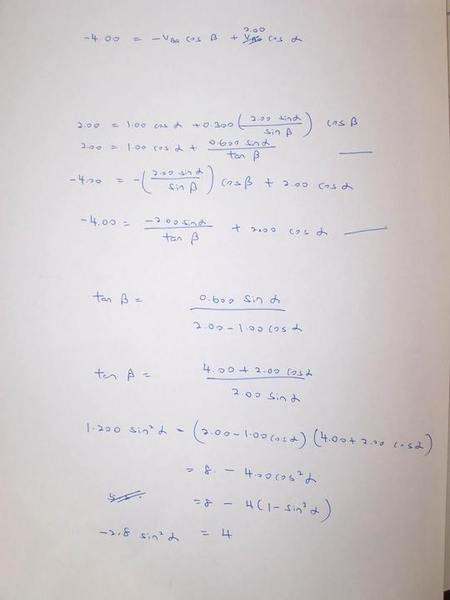 -4.00 = -V_BA cos β + 2.00 cos α
2.00 = 1.00 cos α + 0.300 (2.00 sin α / sin β) cos β
2.00 = 1.00 cos α + 0.600 sin α / tan β
-4.00 = -(2.00 sin α / sin β) cos β + 2.00 cos α
-4.00 = -2.00 sin α / tan β + 2.00 cos α
tan β = 0.600 sin α / 2.00 - 1.00 cos α
tan β = 4.00 + 2.00 cos α / 2.00 sin α
1.200 sin² α = (2.00 - 1.00 cos α) (4.00 + 2.00 cos α)
= 8 - 4.00 cos² α
= 8 - 4 (1 - sin² α)
-2.8 sin² α = 4